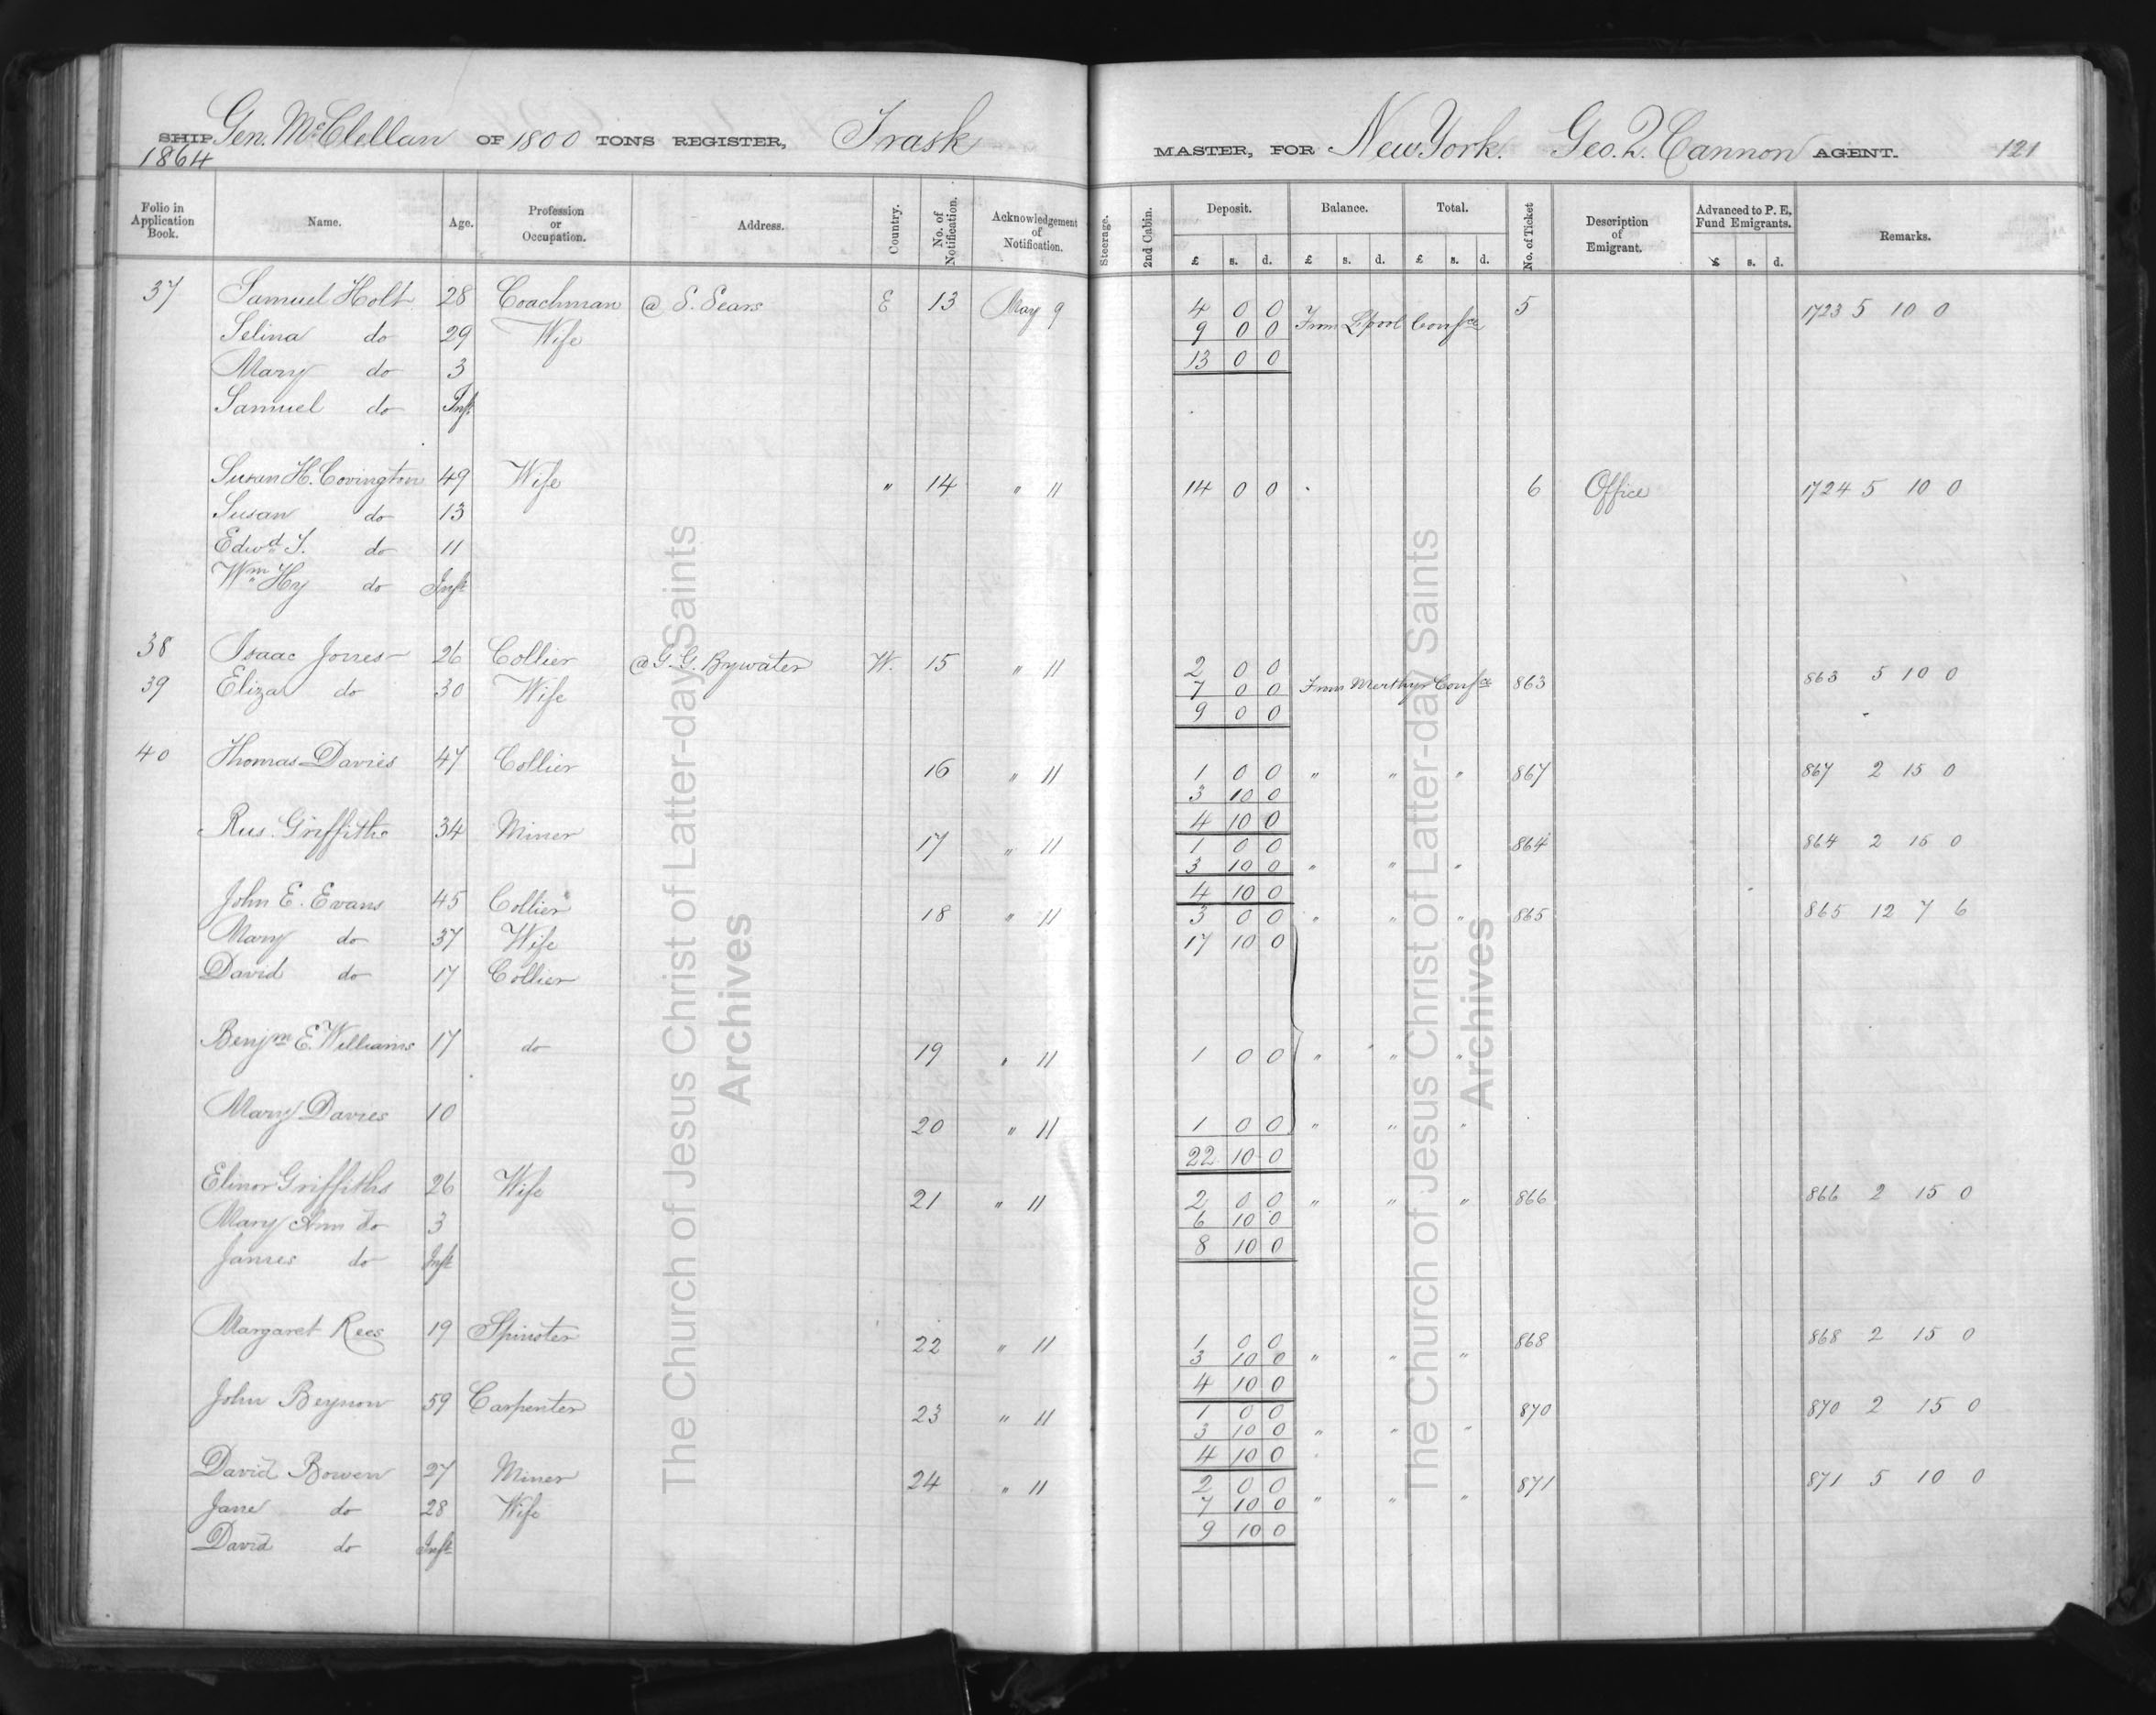 SHIP Gen. McClellan OF 1800 TONS REGISTER, Trask MASTER, FOR New York. Geo. Q. Cannon AGENT. 121
1864
Folio in Application Book. Name. Age. Profession or Occupation. Address. Country. No. of Notification. Acknowledgement of Notification. Steerage. 2nd Cabin. Deposit. Balance. Total. No. of Ticket Description of Emigrant. Advanced to P. E. Fund Emigrants. Remarks.
£ s. d. £ s. d. £ s. d. £ s. d.
37 Samuel Holt 28 Coachman @ S. Sears E 13 May 9 4 0 0 5 1723 5 10 0
Selina do 29 Wife 9 0 0 From L'pool Confce
Mary do 3 13 0 0
Samuel do Inft
Susan H. Covington 49 Wife " 14 " 11 14 0 0 6 Office 1724 5 10 0
Susan do 13
Edwd T. do 11
Wm Hy do Inft
38 Isaac Jones 26 Collier @ G. G. Bywater W. 15 " 11 2 0 0 863 5 10 0
39 Eliza do 30 Wife 7 0 0 From Merthyr Confce 863
9 0 0
40 Thomas Davies 47 Collier 16 " 11 1 0 0 " " " 867 867 2 15 0
3 10 0
4 10 0
Rus. Griffiths 34 Miner 17 " 11 1 0 0 864 864 2 15 0
3 10 0 " " "
4 10 0
John E. Evans 45 Collier 18 " 11 3 0 0 " " " 865 865 12 7 6
Mary do 37 Wife 17 10 0
David do 17 Collier
Benjmn E. Williams 17 do 19 " 11 1 0 0 " " "
Mary Davies 10 20 " 11 1 0 0 " " "
22 10 0
Elinor Griffiths 26 Wife 21 " 11 2 0 0 " " " 866 866 2 15 0
Mary Ann do 3 6 10 0
James do Inft 8 10 0
Margaret Rees 19 Spinster 22 " 11 1 0 0 868 868 2 15 0
3 10 0 " " "
4 10 0
John Beynon 59 Carpenter 23 " 11 1 0 0 870 870 2 15 0
3 10 0 " " "
4 10 0
David Bowen 27 Miner 24 " 11 2 0 0 871 871 5 10 0
Jane do 28 Wife 7 10 0 " " "
David do Inft 9 10 0
The Church of Jesus Christ of Latter-day Saints
Archives
The Church of Jesus Christ of Latter-day Saints
Archives